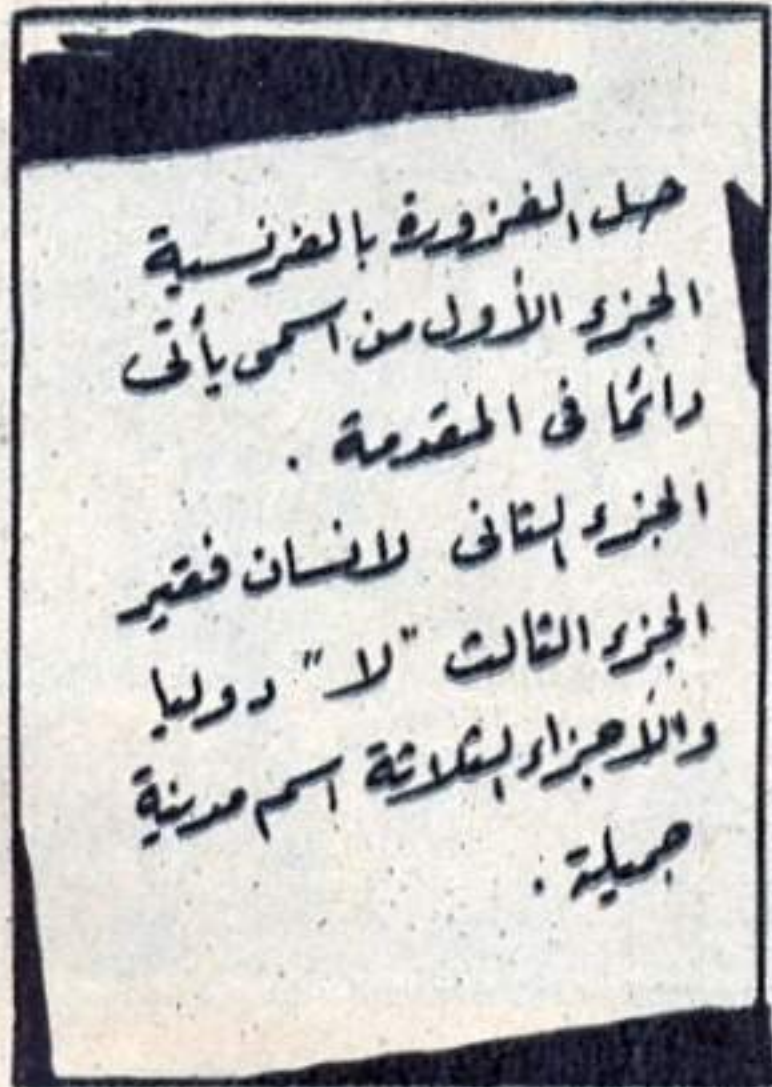 حل الفزورة بالفرنسية
الجزء الأول من اسمى يأتى
دائما فى المقدمة .
الجزء الثانى لانسان فقير
الجزء الثالث "لا" دوليا
والأجزاء الثلاثة اسم مدينة
جميلة .